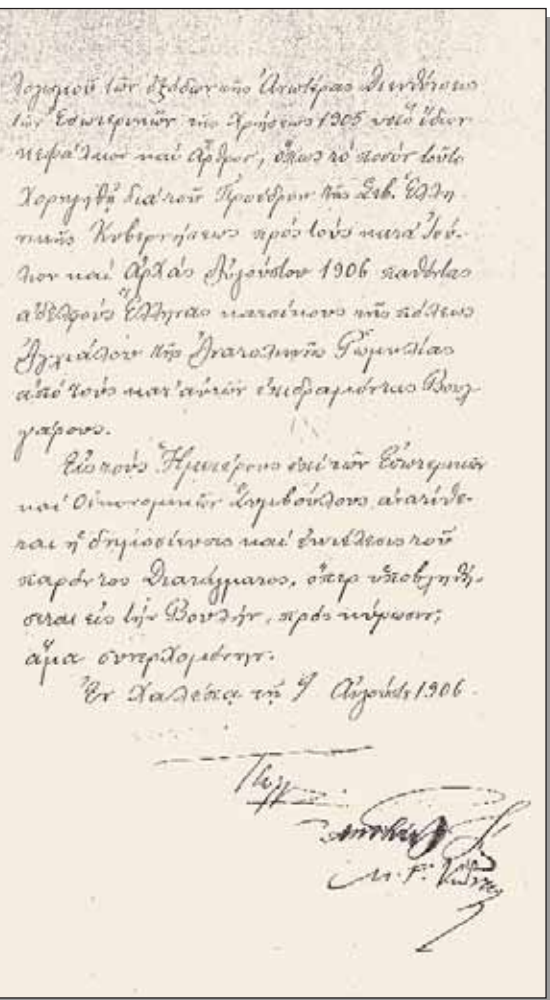 λογισμοῦ τῶν ἐξόδων τῆς Ἀνωτέρας Διευθύνσεως
τῶν Ἐσωτερικῶν τῆς χρήσεως 1905 ὑπὸ ἴδιον
κεφάλαιον καὶ ἄρθρον, ὅπως τὸ ποσὸν τοῦτο
χορηγηθῇ διὰ τοῦ Προέδρου τῆς Σεβ. Ἑλλη-
νικῆς Κυβερνήσεως πρὸς τοὺς κατὰ Ἰού-
λιον καὶ ἀρχὰς Αὐγούστου 1906 παθόντας
ἀδελφοὺς Ἕλληνας κατοίκους τῆς πόλεως
Ἀγχιάλου τῆς Ἀνατολικῆς Ῥωμυλίας
ἀπὸ τοὺς κατ' αὐτῶν ἐπιδραμόντας Βουλ
γάρους.
Εἰς τοὺς Ἡμετέρους ἐπὶ τῶν Ἐσωτερικῶν
καὶ Οἰκονομικῶν Συμβούλους ἀνατίθε-
ται ἡ δημοσίευσις καὶ ἐκτέλεσις τοῦ
παρόντος Διατάγματος, ὅπερ ὑποβληθή-
σεται εἰς τὴν Βουλὴν, πρὸς κύρωσιν,
ἅμα συνερχομένην.
Ἐν Χαλέπᾳ τῇ Αὐγούστου 1906.